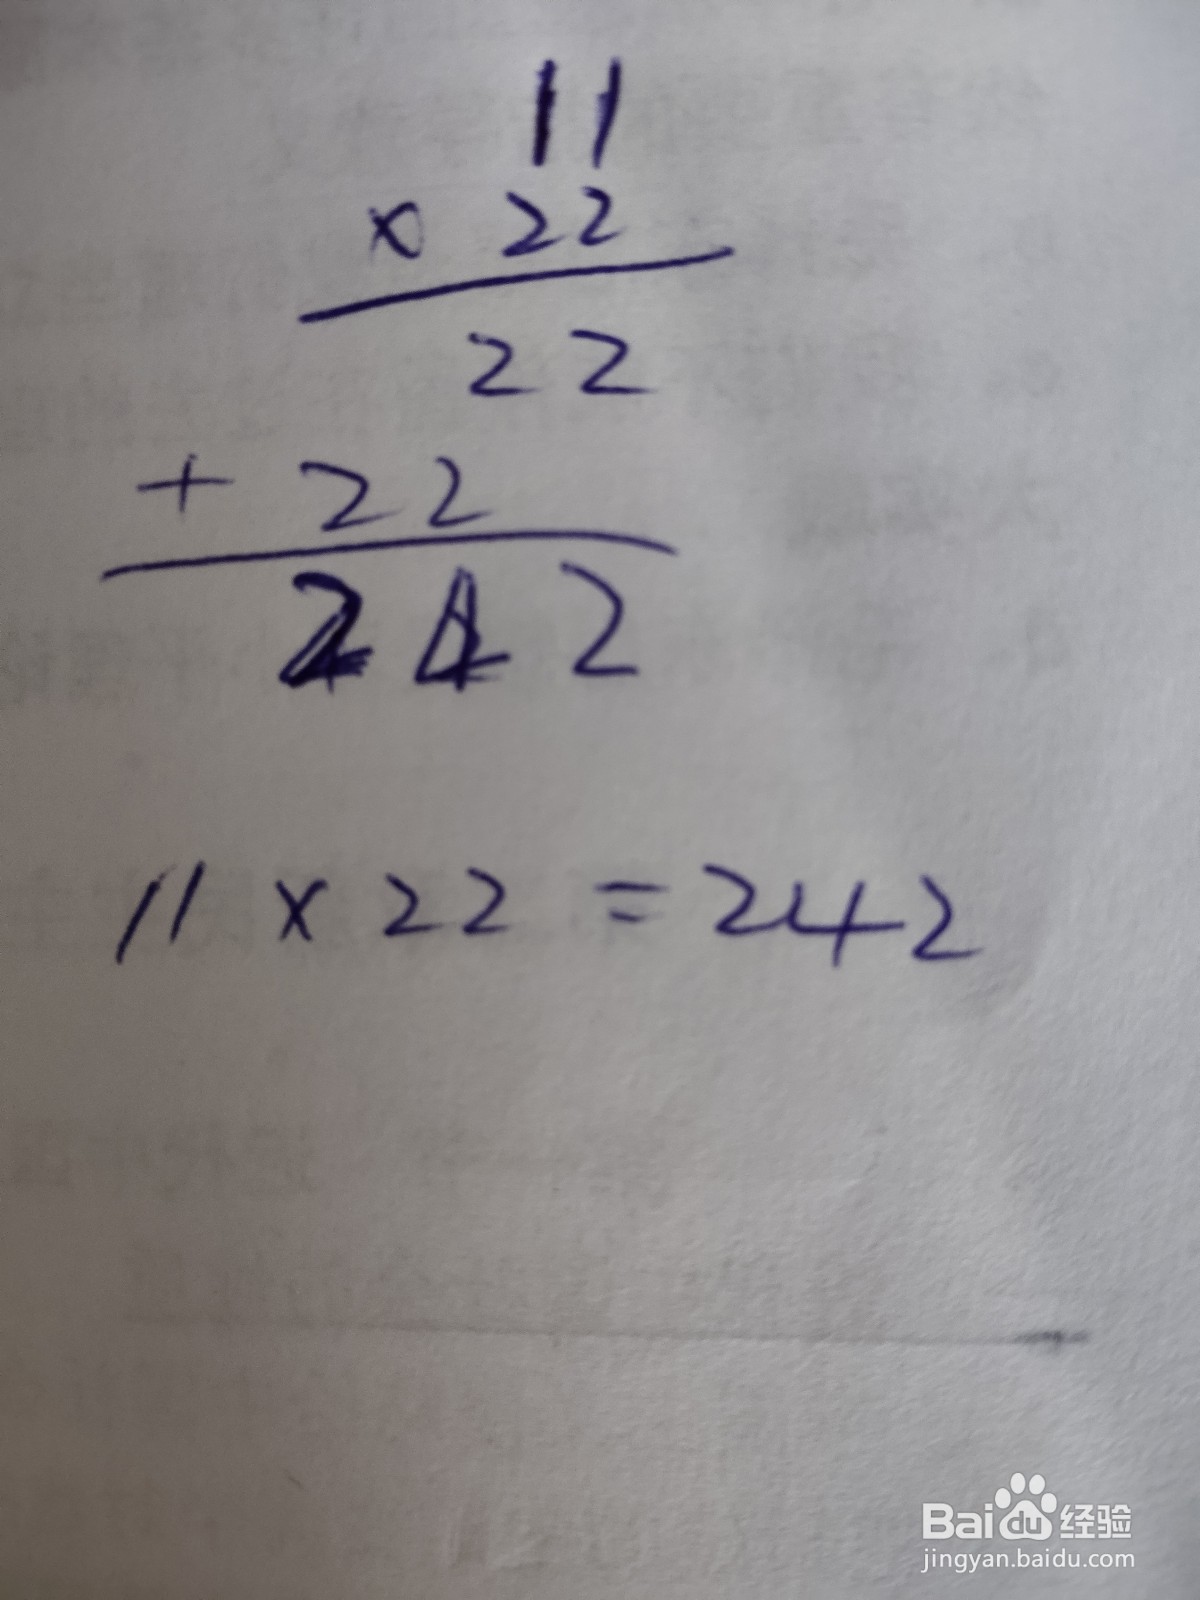 11
× 22
22
+ 22
242
11 × 22 = 242
Baidu经验
jingyan.baidu.com